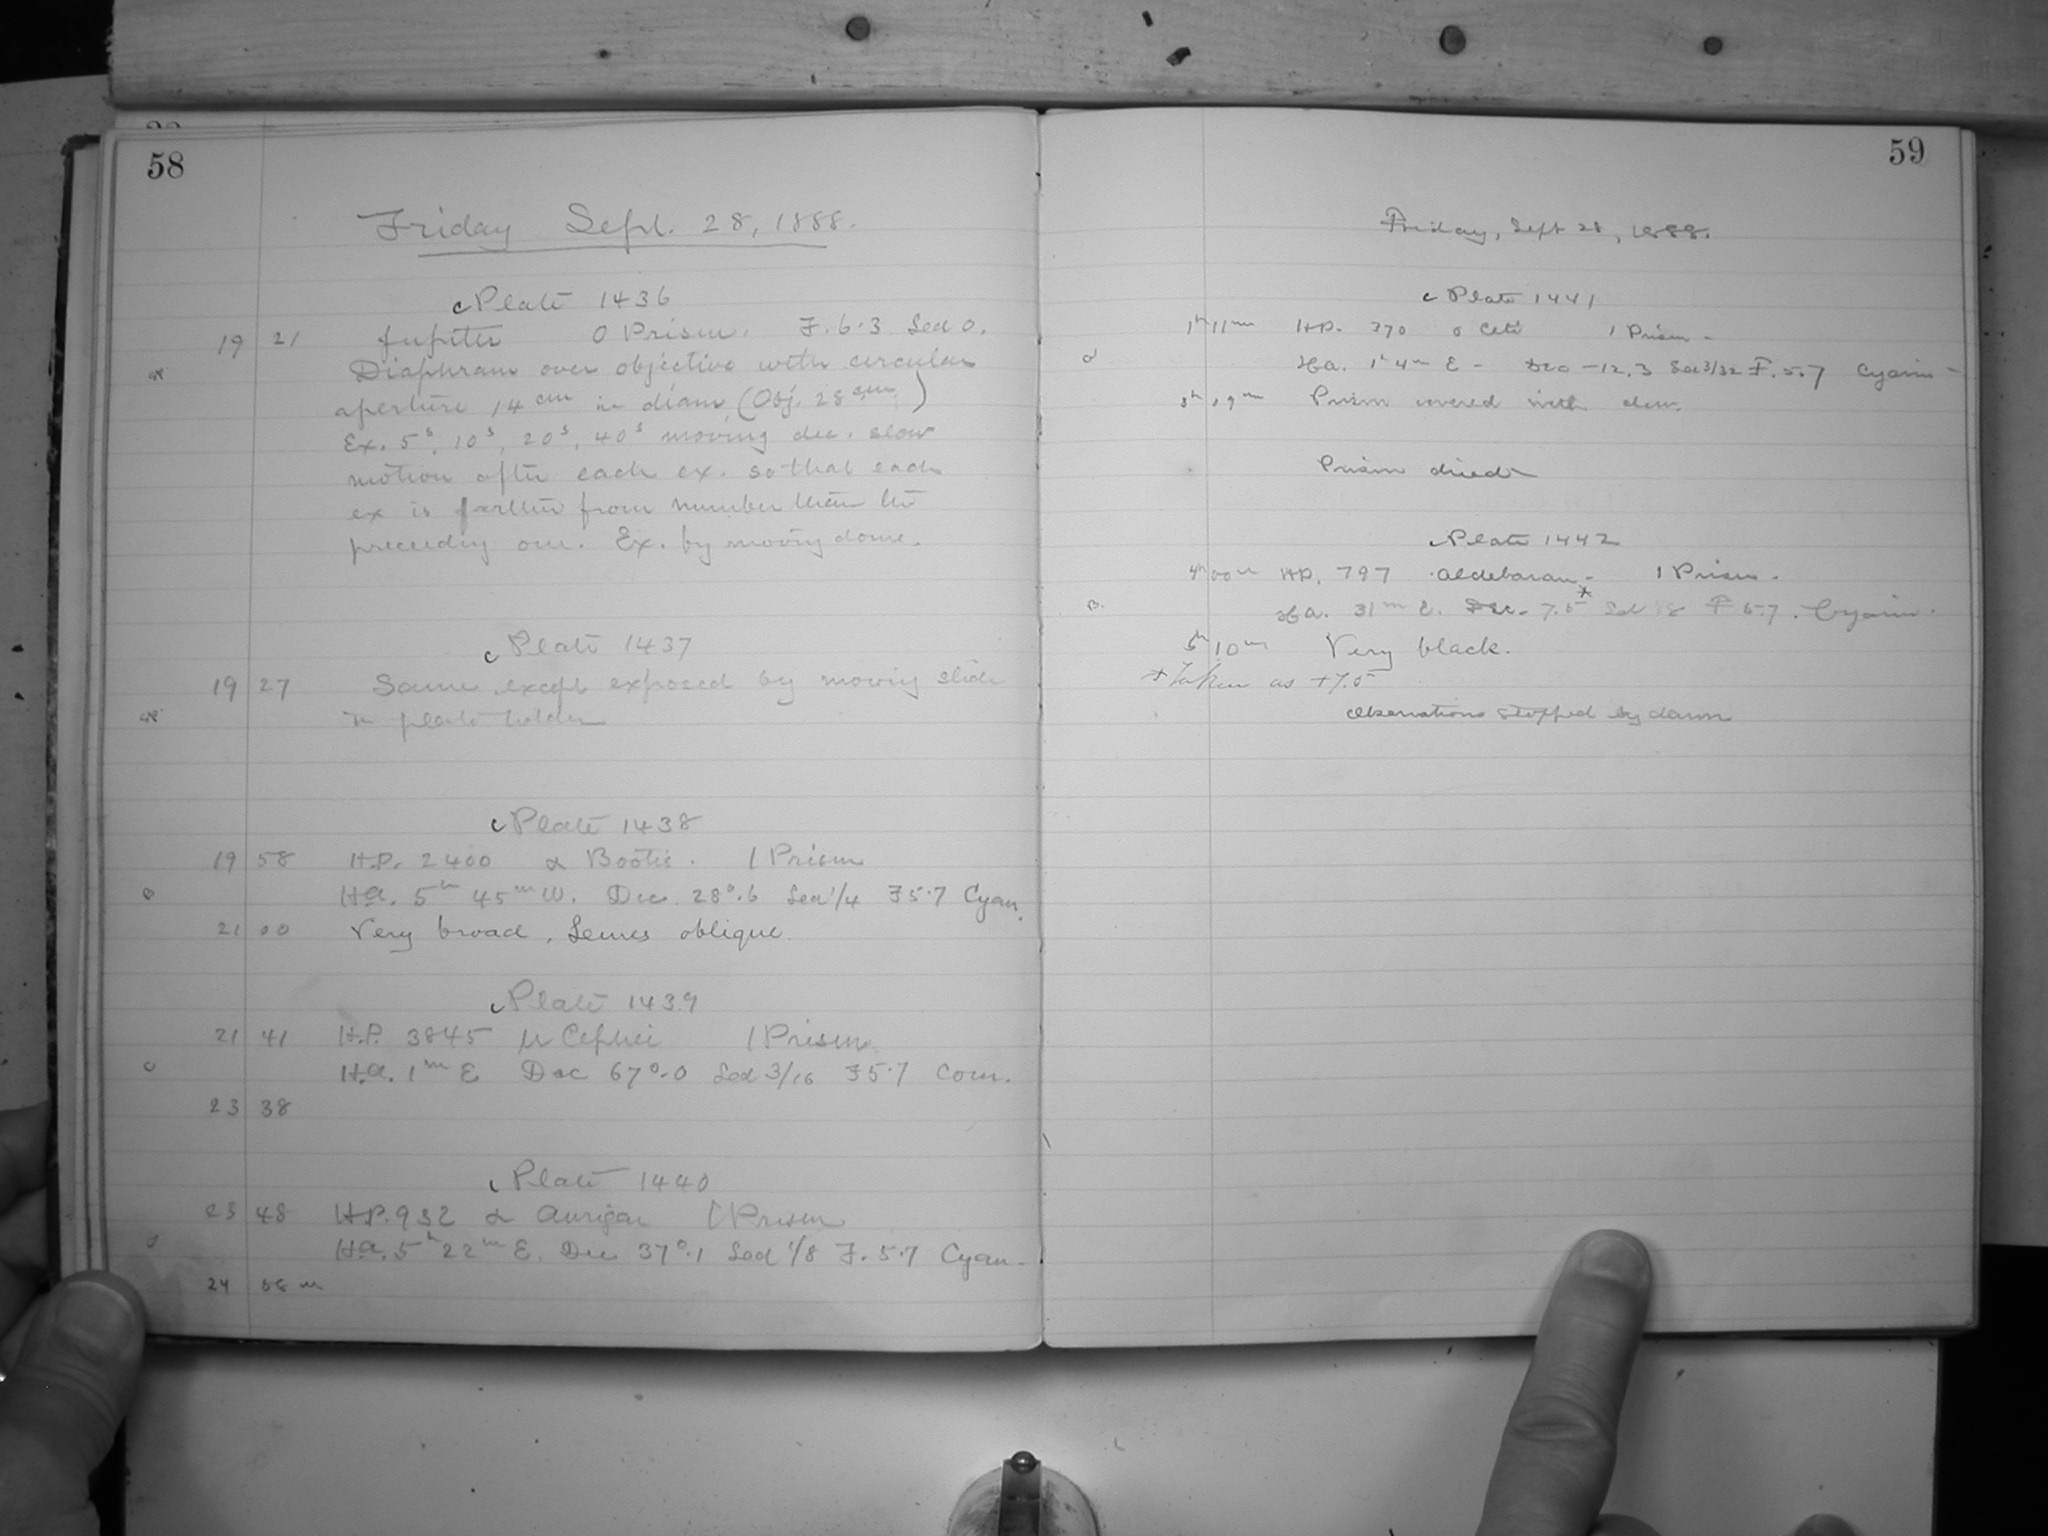 58
Friday Sept. 28, 1888.
c Plate 1436
19 21 Jupiter 0 Prism. F. 6.3 Sed 0.
Diaphram over objective with circular
aperture 14 cm in diam (Obj. 28 cm)
Ex. 5s, 10s, 20s, 40s moving dec. slow
motion after each ex. so that each
ex is farther from number than the
preceding one. Ex. by moving dome.
c Plate 1437
19 27 Same except exposed by moving slide
in plate holder
c Plate 1438
19 58 H.P. 2400 α Bootis. 1 Prism
Ha. 5h 45m W. Dec. 28°.6 Sed 1/4 F 5.7 Cyan.
21 00 Very broad, Lines oblique.
c Plate 1439
21 41 H.P. 3845 μ Cephei 1 Prism
c H.a. 1m E Dec 67°.0 Sed 3/16 F 5.7 Com.
23 38
c Plate 1440
23 48 H.P. 932 α Aurigae 1 Prism
Ha. 5h 22m E. Dec 37°.1 Sed 1/8 F. 5.7 Cyan.
24 58 m
59
Friday, Sept 28, 1888.
c Plate 1441
1h 11m H.P. 370 o Ceti 1 Prism -
Ha. 1h 4m E - Dec -12.3 Sed 3/32 F. 5.7 Cyanin -
3h 09m Prism covered with dew.
Prism dried
c Plate 1442
4h 00m H.P. 797 Aldebaran - 1 Prism -
B. Ha. 31m E. Dec. 7.5* Sed 1/8 F 5.7. Cyanin.
5h 10m Very black.
* Taken as +7.5
Observations stopped by dawn